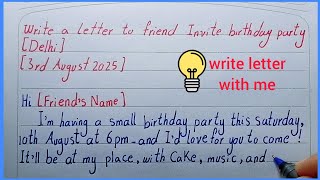 Write a letter to friend Invite birthday party
[Delhi]
[3rd August 2025]
write letter
with me
Hi [Friend's Name]
I'm having a small birthday party this Saturday,
10th August at 6pm - and I'd love for you to come !
It'll be at my place, with Cake, music, and